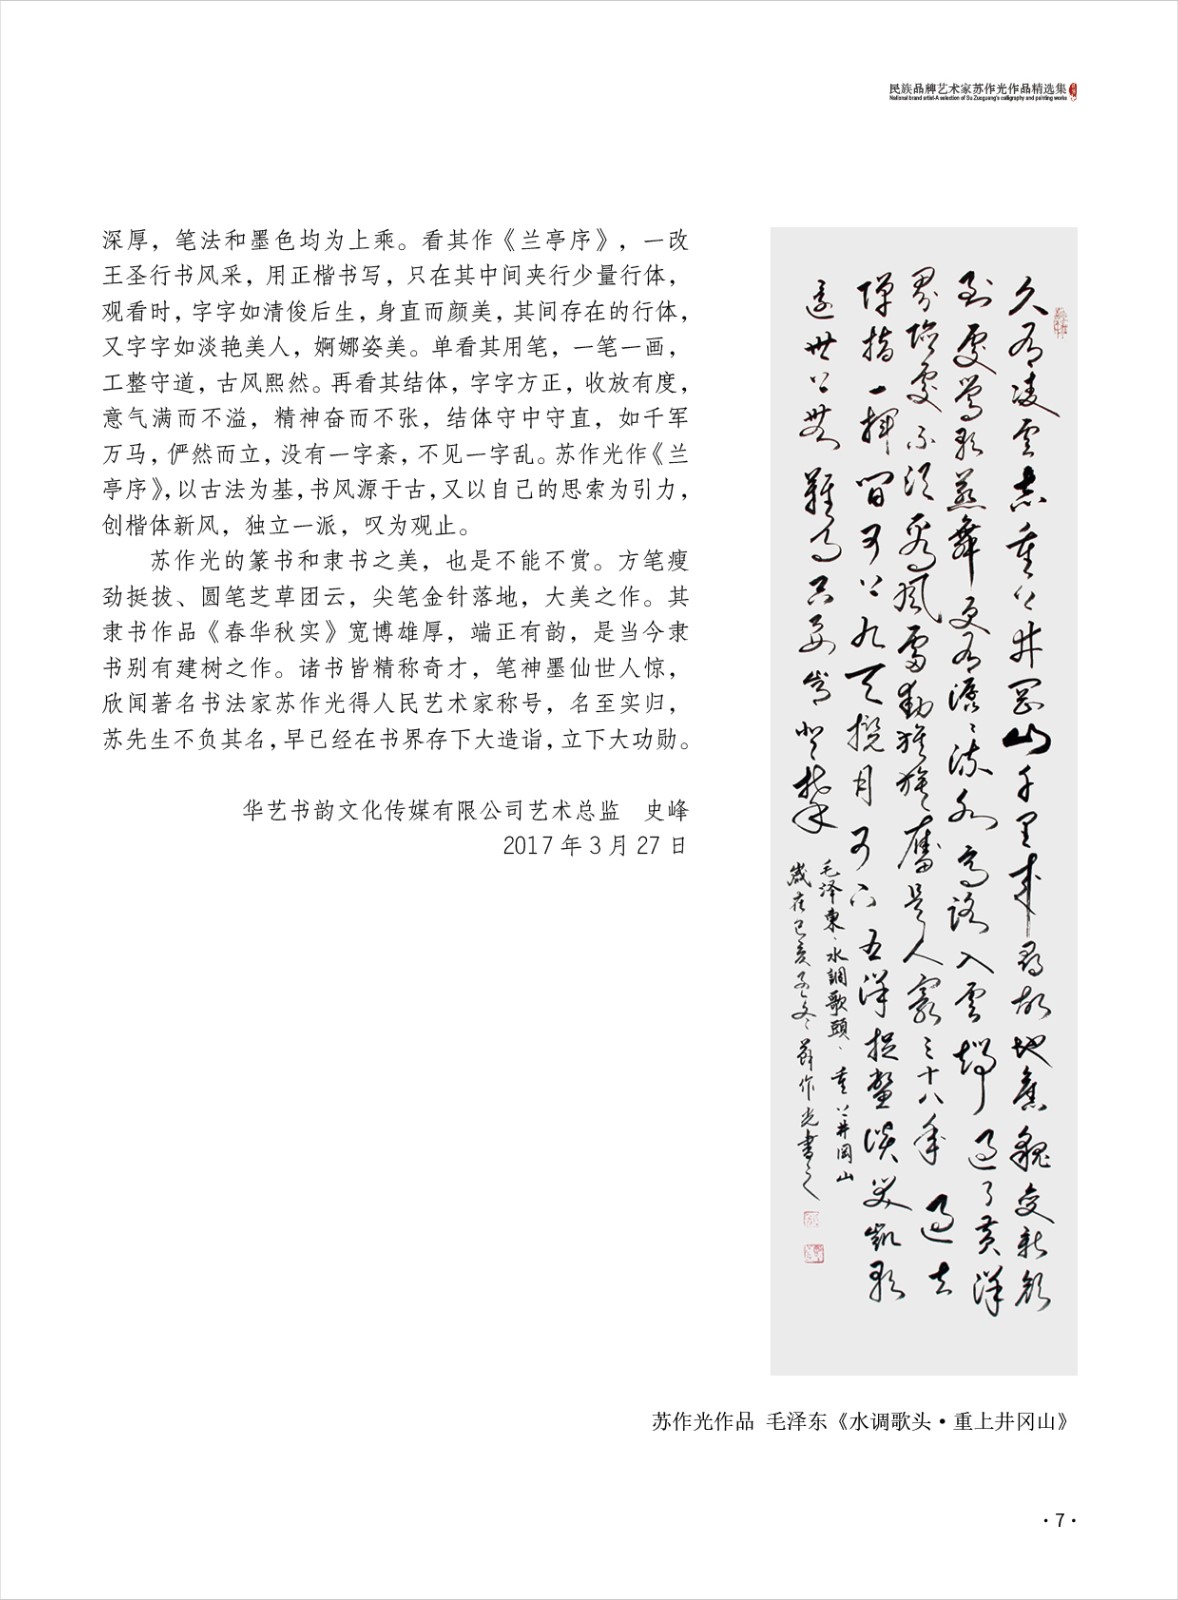 民族品牌艺术家苏作光作品精选集
National brand artist-A selection of Su Zuoguang's calligraphy and painting works
深厚，笔法和墨色均为上乘。看其作《兰亭序》，一改
王圣行书风采，用正楷书写，只在其中间夹行少量行体，
观看时，字字如清俊后生，身直而颜美，其间存在的行体，
又字字如淡艳美人，婀娜姿美。单看其用笔，一笔一画，
工整守道，古风熙然。再看其结体，字字方正，收放有度，
意气满而不溢，精神奋而不张，结体守中守直，如千军
万马，俨然而立，没有一字紊，不见一字乱。苏作光作《兰
亭序》，以古法为基，书风源于古，又以自己的思索为引力，
创楷体新风，独立一派，叹为观止。
苏作光的篆书和隶书之美，也是不能不赏。方笔瘦
劲挺拔、圆笔芝草团云，尖笔金针落地，大美之作。其
隶书作品《春华秋实》宽博雄厚，端正有韵，是当今隶
书别有建树之作。诸书皆精称奇才，笔神墨仙世人惊，
欣闻著名书法家苏作光得人民艺术家称号，名至实归，
苏先生不负其名，早已经在书界存下大造诣，立下大功勋。
华艺书韵文化传媒有限公司艺术总监　史峰
2017 年 3 月 27 日
久有凌雲志重上井岡山千里來尋故地舊貌变新顔
到處鶯歌燕舞更有潺々流水高路入雲端過了黄洋
界險處不須看風雷動旌旗奮是人寰三十八年過去
弹指一揮間可上九天攬月可下五洋捉鱉談笑凱歌
還世上無難事只要肯登攀
毛泽東、水調歌頭、重上井岡山
歲在己亥孟冬、蘇作光書之
苏作光作品 毛泽东《水调歌头·重上井冈山》
·7·